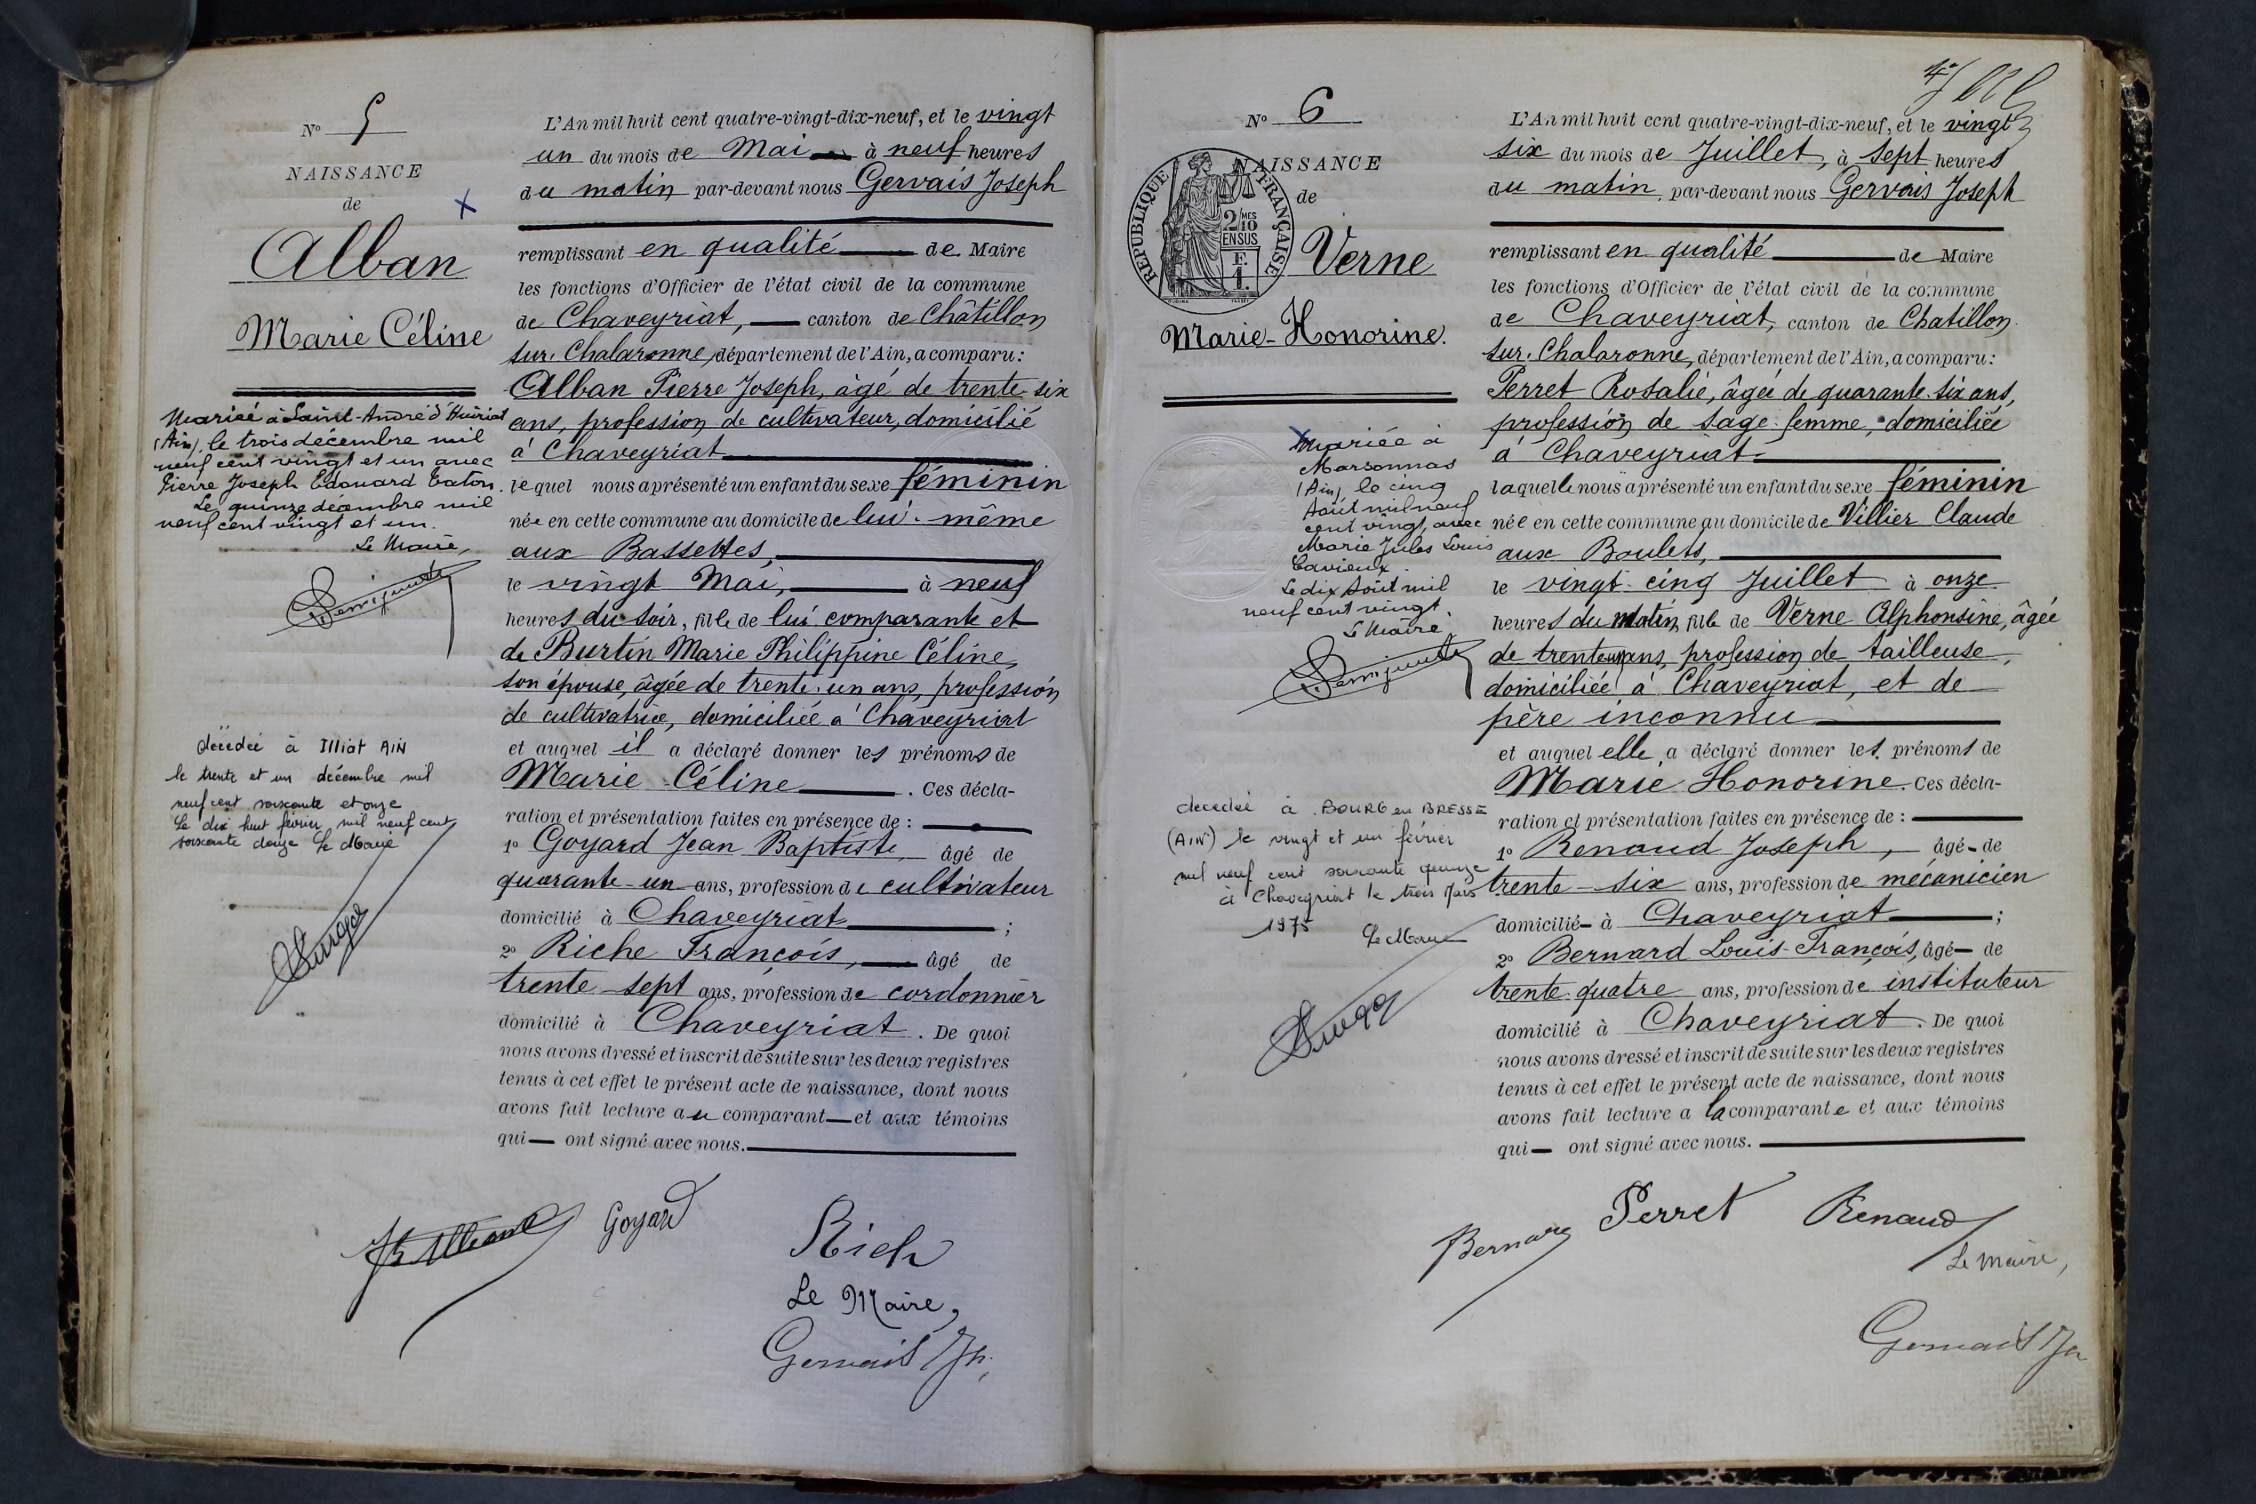 N° 5
NAISSANCE
de
Alban
Marie Céline
Mariée à Saint-André d'Huiriat
(Ain), le trois décembre mil
neuf cent vingt et un avec
Pierre Joseph Edouard
Le quinze décembre mil
neuf cent vingt et un.
Le Maire,
décédée à Illiat AIN
le trente et un décembre mil
neuf cent soixante et onze
Le dix huit février mil neuf cent
soixante douze Le Maire
L'An mil huit cent quatre-vingt-dix-neuf, et le vingt
un du mois de Mai à neuf heures
du matin par-devant nous Gervais Joseph
remplissant en qualité de Maire
les fonctions d'Officier de l'état civil de la commune
de Chaveyriat, canton de Châtillon
sur. Chalaronne, département de l'Ain, a comparu:
Alban Pierre Joseph, âgé de trente-six
ans, profession de cultivateur, domicilié
à Chaveyriat
lequel nous a présenté un enfant du sexe féminin
née en cette commune au domicile de lui-même
aux Bassettes,
le vingt Mai, à neuf
heures du soir, fille de lui comparant et
de Burtin Marie Philippine Céline,
son épouse, âgée de trente-un ans, profession
de cultivatrice, domiciliée à Chaveyriat
et auquel il a déclaré donner les prénoms de
Marie Céline. Ces décla-
ration et présentation faites en présence de :
1° Goyard Jean Baptiste, âgé de
quarante-un ans, profession de cultivateur
domicilié à Chaveyriat ;
2° Riche François, âgé de
trente-sept ans, profession de cordonnier
domicilié à Chaveyriat. De quoi
nous avons dressé et inscrit de suite sur les deux registres
tenus à cet effet le présent acte de naissance, dont nous
avons fait lecture au comparant et aux témoins
qui ont signé avec nous.
Goyard
Rich
Le Maire,
Gervais Jh
N° 6
NAISSANCE
de
RÉPUBLIQUE FRANÇAISE
2/10 MES
EN SUS
Verne
Marie-Honorine.
Mariée à
Marsonnas
(Ain), le cinq
Août mil neuf
cent vingt, avec
Marie Jules Louis
Cavieux.
Le dix Août mil
neuf cent vingt.
Le Maire
decedée à BOURG en BRESSE
(AIN) le vingt et un février
mil neuf cent soixante quinze
à Chaveyriat le trois Mars
1975 Le Maire
L'An mil huit cent quatre-vingt-dix-neuf, et le vingt
six du mois de Juillet, à sept heures
du matin, par-devant nous Gervais Joseph
remplissant en qualité de Maire
les fonctions d'Officier de l'état civil de la commune
de Chaveyriat, canton de Chatillon
sur. Chalaronne, département de l'Ain, a comparu:
Perret Rosalie, âgée de quarante-six ans,
profession de sage-femme, domiciliée
à Chaveyriat
laquelle nous a présenté un enfant du sexe féminin
née en cette commune au domicile de Villier Claude
aux Boulets,
le vingt-cinq Juillet à onze
heures du matin, fille de Verne Alphonsine, âgée
de trente un ans, profession de tailleuse,
domiciliée à Chaveyriat, et de
père inconnu
et auquel elle a déclaré donner les prénoms de
Marie Honorine. Ces décla-
ration et présentation faites en présence de :
1° Renaud Joseph, âgé de
trente-six ans, profession de mécanicien
domicilié à Chaveyriat ;
2° Bernard Louis-François, âgé de
trente-quatre ans, profession de instituteur
domicilié à Chaveyriat. De quoi
nous avons dressé et inscrit de suite sur les deux registres
tenus à cet effet le présent acte de naissance, dont nous
avons fait lecture a la comparante et aux témoins
qui ont signé avec nous.
Bernard Perret Renaud
Le Maire,
Gervais Jh